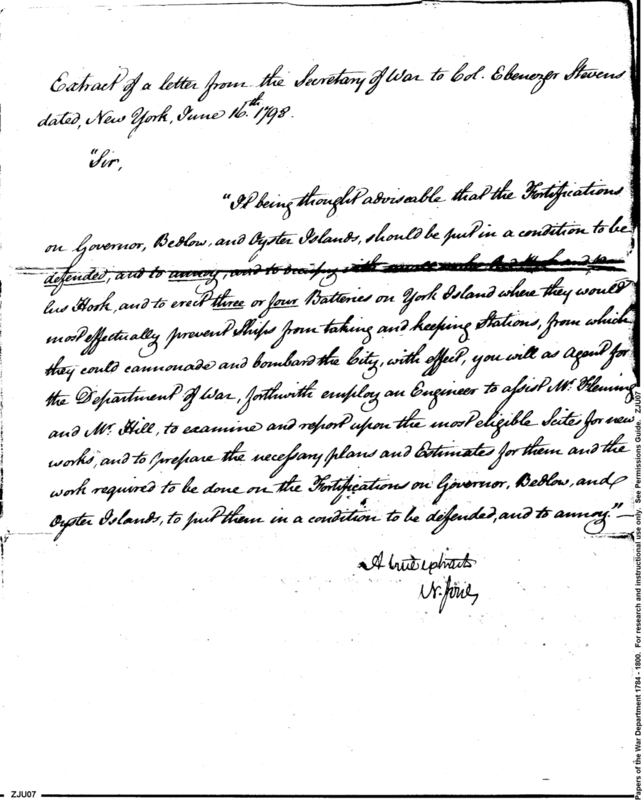 Extract of a letter from the Secretary of War to Col. Ebenezer Stevens
dated, New York, June 16.th 1798.
"Sir,
"It being thought adviseable that the Fortifications
on Governor, Bedlow, and Oyster Islands, should be put in a condition to be
defended, and to annoy, and to
lus Hook, and to erect three or four Batteries on York Island where they would
most effectually prevent Ships from taking and keeping Stations, from which
they could cannonade and bombard the City, with effect, you will as Agent for
the Department of War, forthwith employ an Engineer to assist Mr. Fleming
and Mr. Hill, to examine and report upon the most eligible Scites for new
works, and to prepare the necessary plans and Estimates for them and the
work required to be done on the Fortifications on Governor, Bedlow, and
Oyster Islands, to put them in a condition to be defended, and to annoy."
A true extract
N. Jones
ZJU07
Papers of the War Department 1784 - 1800. For research and instructional use only. See Permissions Guide. ZJU07